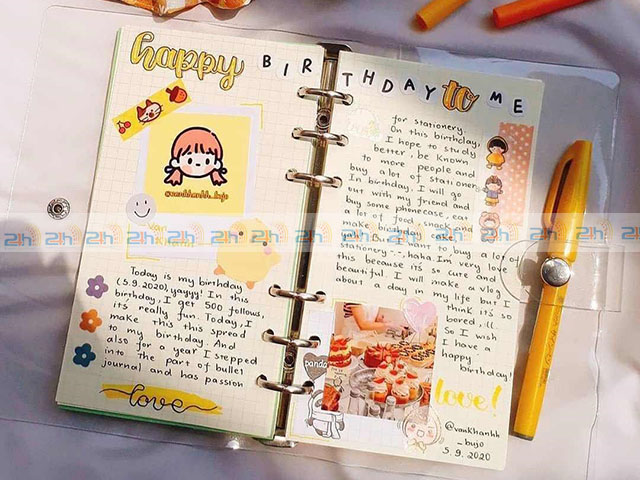 happy BIRTHDAY to ME
@vankhanhh_bujo
Today is my birthday
(5.9.2020), yayyy! In this
birthday, I get 500 follows,
it's really fun. Today, I
make this this spread
to my birthday. And
also for a year I stepped
into the part of bullet
journal and has passion
love
for stationery.
On this birthday,
I hope to study
better, be known
to more people and
buy a lot of stationery
In birthday, I will go
out with my friend and
buy some phonecase, eat
a lot of food, snack and
make birthday cake. Oh
yeah! I want to buy a lot of
stationery -.-, haha. I'm very love
this because it's so cute and
beautiful I will make a vlog
about a day in my life but I
think it's so
bored, :((.
So I wish
I have a
happy
birthday!
panda
love!
@vankhanhh
_bujo
5.9.2020
2h 2h 2h 2h 2h 2h 2h 2h 2h 2h 2h 2h 2h 2h